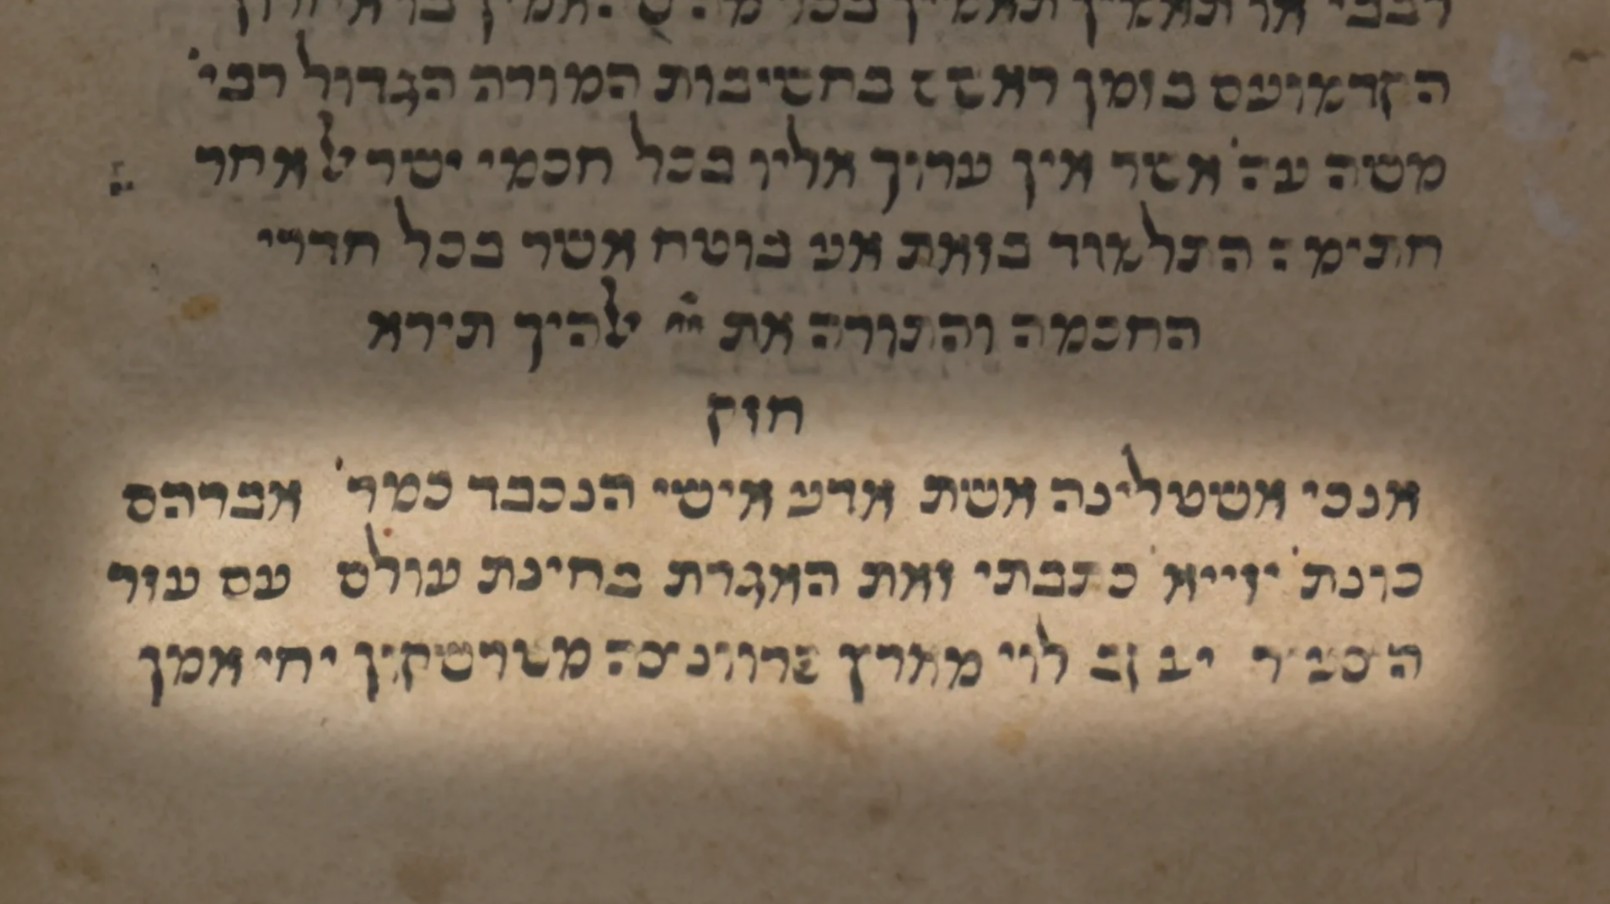 הקדמונים בזמן ראשם בחשיבות המורה הגדול רבי'
משה ע'ה' אשר אין ערוך אליו בכל חכמי ישראל אחר
חתימת התלמוד בזאת אני בוטח אשר בכל חדרי
החכמה והתורה את ייי אלהיך תירא
חזק
אנכי אשטלינה אשת אדני אישי הנכבד כמר' אברהם
כונת' יזייא' כתבתי זאת האגרת בחינת עולם עם עזר
לוי מארץ פרווינצה מטרשקון יחי אמן